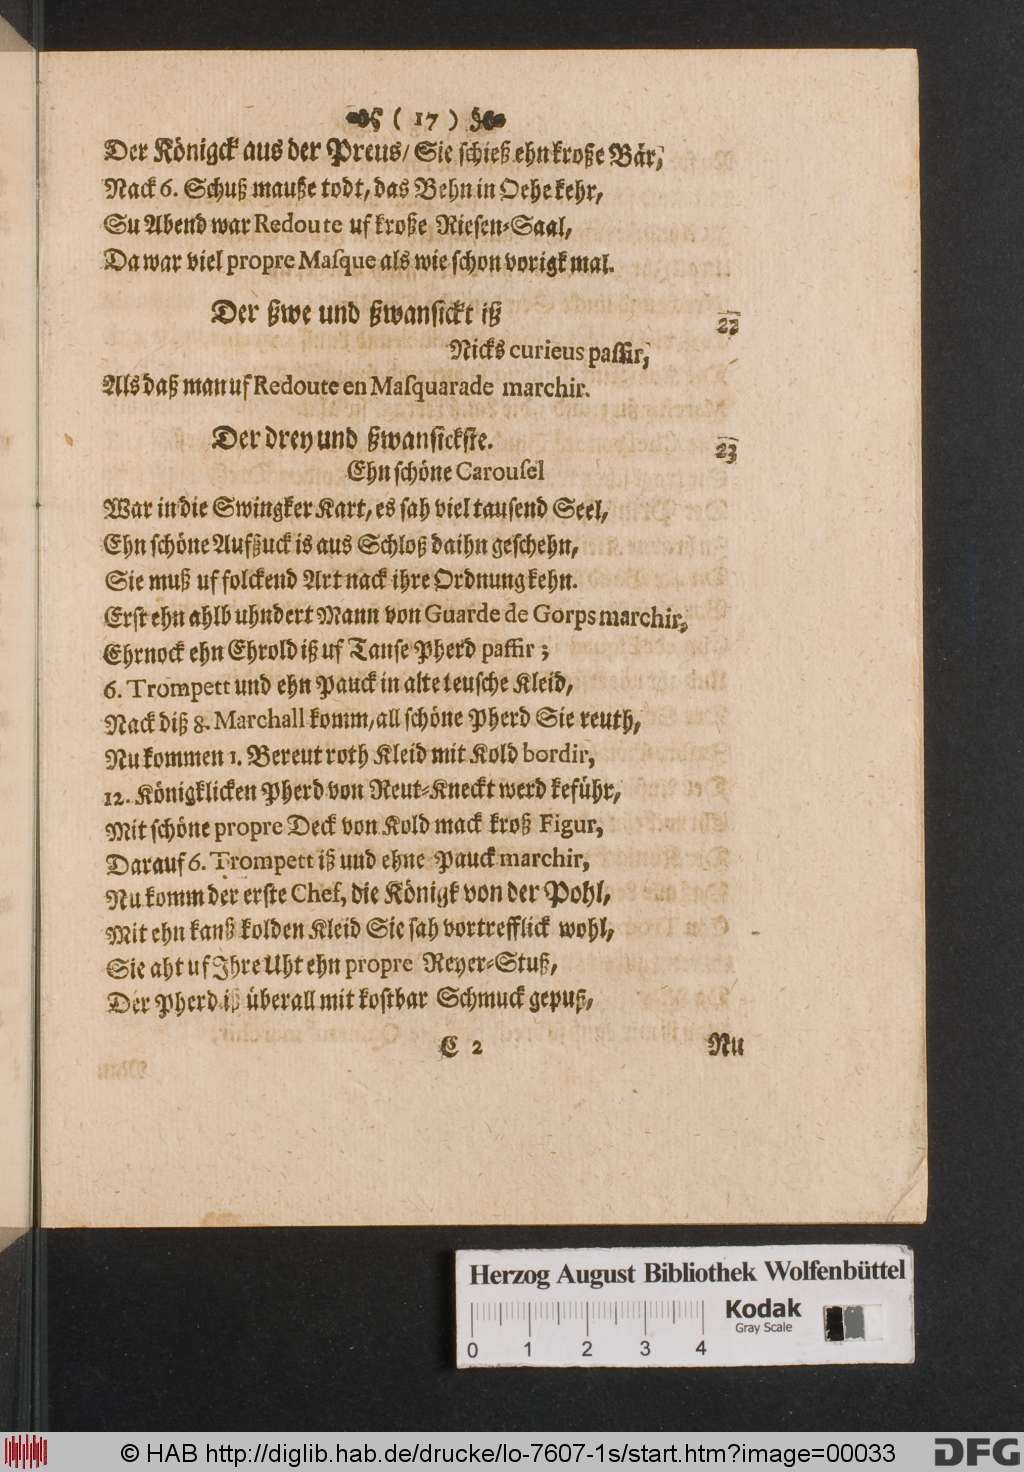 ( 17 )
Der Königck aus der Preus/ Sie schieß ehn kroße Bär,
Nack 6. Schuß mauße todt, das Behn in Oehe kehr,
Su Abend war Redoute uf kroße Riesen-Saal,
Da war viel propre Masque als wie schon vorigk mal.
Der ßwe und ßwansickt iß
22
Nicks curieus passir,
Als daß man uf Redoute en Masquarade marchir.
Der drey und ßwansickste.
23
Ehn schöne Carousel
War in die Swingker Kart, es sah viel tausend Seel,
Ehn schöne Aufßuck is aus Schloß daihn geschehn,
Sie muß uf folckend Art nack ihre Ordnung kehn.
Erst ehn ahlb uhndert Mann von Guarde de Gorps marchir,
Ehrnock ehn Ehrold iß uf Tanse Pherd passir ;
6. Trompett und ehn Pauck in alte teusche Kleid,
Nack diß 8. Marchall komm, all schöne Pherd Sie reuth,
Nu kommen 1. Bereut roth Kleid mit Kold bordir,
12. Königklicken Pherd von Reut-Kneckt werd keführ,
Mit schöne propre Deck von Kold mack kroß Figur,
Darauf 6. Trompett iß und ehne Pauck marchir,
Nu komm der erste Chef, die Königk von der Pohl,
Mit ehn kanß kolden Kleid Sie sah vortrefflick wohl,
Sie aht uf Ihre Uht ehn propre Reyer-Stuß,
Der Pherd iß überall mit kostbar Schmuck gepuß,
C 2
Nu
Herzog August Bibliothek Wolfenbüttel
Kodak
Gray Scale
0 1 2 3 4
© HAB http://diglib.hab.de/drucke/lo-7607-1s/start.htm?image=00033
DFG